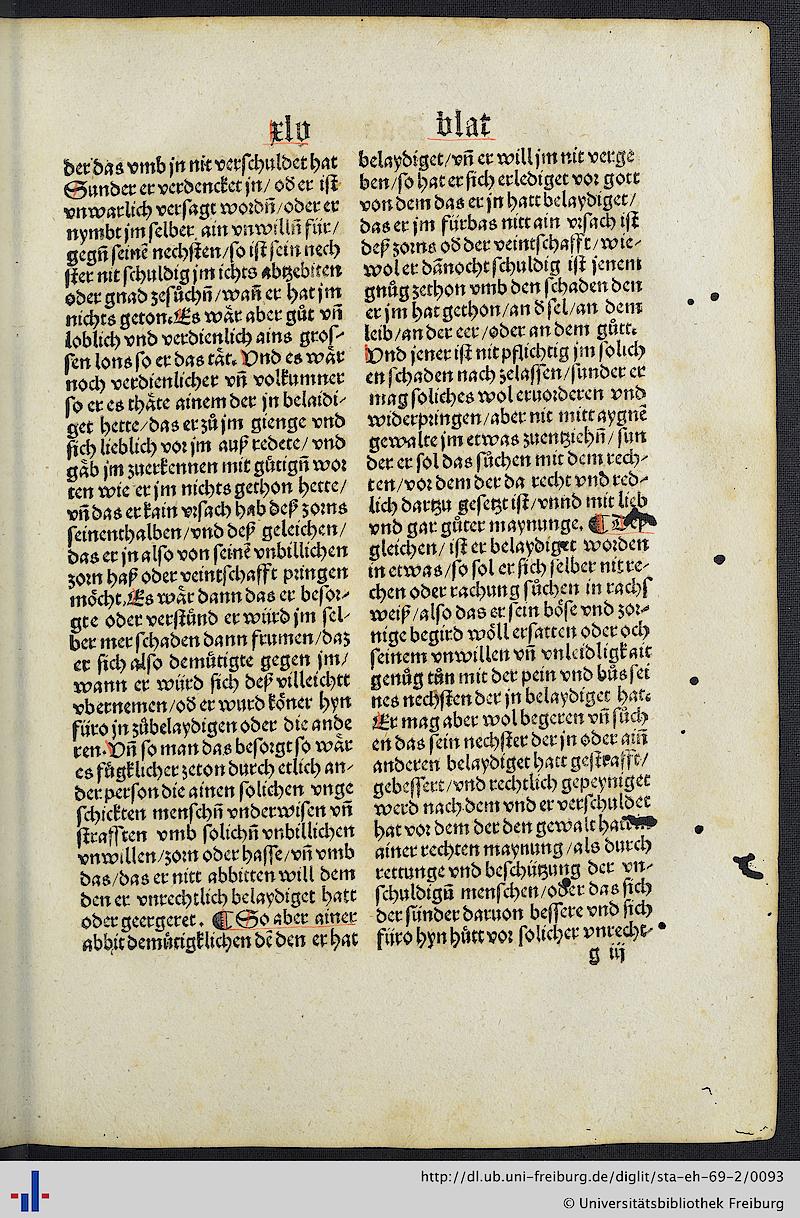 xlv blat
der das vmb jn nit verschuldet hat
Sunder er verdencket jn/ oď er ist
vnwarlich versagt wordñ/oder er
nymbt jm selber ain vnwillñ für/
gegñ seinē nechsten/so ist sein nech
ster nit schuldig jm ichts abtzebiten
oder gnad zesůchñ/wañ er hat jm
nichts geton. Es wär aber gůt vñ
loblich vnd verdienlich ains gros-
sen lons so er das tät. Vnd es wär
noch verdienlicher vñ volkumner
so er es thäte ainem der jn belaidi-
get hette/das er zů jm gienge vnd
sich lieblich vor jm auß redete/vnd
gäb jm zuerkennen mit gütigñ wor
ten wie er jm nichts gethon hette/
vñ das er kain vrsach hab deß zorns
seinenthalben/vnd deß geleichen/
das er jn also von seinē vnbillichen
zorn haß oder veintschafft pringen
möcht. Es wär dann das er besor-
gte oder verstünd er würd jm sel-
ber mer schaden dann frumen/daz
er sich also demütigte gegen jm/
wann er würd sich deß villeichtt
vbernemen/oď er wurd köner hyn
füro jn zůbelaydigen oder die ande
ren. Vñ so man das besorgt so wär
es fügklicher zeton durch etlich an-
der person die ainen solichen vnge
schickten menschñ vnderwisen vñ
strafften vmb solichñ vnbillichen
vnwillen/zorn oder hasse/vñ vmb
das/das er nitt abbitten will dem
den er vnrechtlich belaydiget hatt
oder geergeret. ¶ So aber ainer
abbit demütigklichen dē den er hat
belaydiget/vñ er will jm nit verge
ben/so hat er sich erlediget vor gott
von dem das er jn hatt belaydiget/
das er jm fürbas nitt ain vrsach ist
deß zorns oď der veintschafft/wie-
wol er dānocht schuldig ist jenem
gnůg zethon vmb den schaden den
er jm hat gethon/an ď sel/an dem
leib/an der eer/oder an dem gůtt.
Vnd jener ist nit pflichtig jm solich
en schaden nach zelassen/sunder er
mag soliches wol eruorderen vnd
widerpringen/aber nit mitt aygnē
gewalte jm etwas zuentziehñ/sun
der er sol das sůchen mit dem rech-
ten/vor dem der da recht vnd red-
lich dartzu gesetzt ist/vnnd mit lieb
vnd gar gůter maynunge. ¶ Deß
gleichen/ ist er belaydiget worden
in etwas/so sol er sich selber nit re-
chen oder rachung sůchen in rachs
weiß/also das er sein böse vnd zor-
nige begird wöll ersatten oder och
seinem vnwillen vñ vnleidligkait
genůg tůn mit der pein vnd bůs sei
nes nechsten der jn belaydiget hat.
Er mag aber wol begeren vñ sůch
en das sein nechster der jn oder aiñ
anderen belaydiget hatt gestrafft/
gebessert/vnd rechtlich gepeyniget
werd nach dem vnd er verschuldet
hat vor dem der den gewalt hat
ainer rechten maynung/als durch
rettunge vnd beschützung der vn-
schuldigñ menschen/oder das sich
der sünder daruon bessere vnd sich
füro hyn hütt vor solicher vnrecht-
g iij
http://dl.ub.uni-freiburg.de/diglit/sta-eh-69-2/0093
© Universitätsbibliothek Freiburg